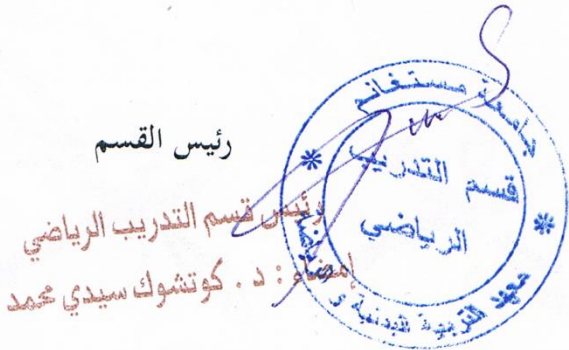 رئيس القسم
رئيس قسم التدريب الرياضي
إمضاء : د . كوتشوك سيدي محمد
جامعة مستغانم
قسم التدريب
الرياضي
معهد التربية البدنية و